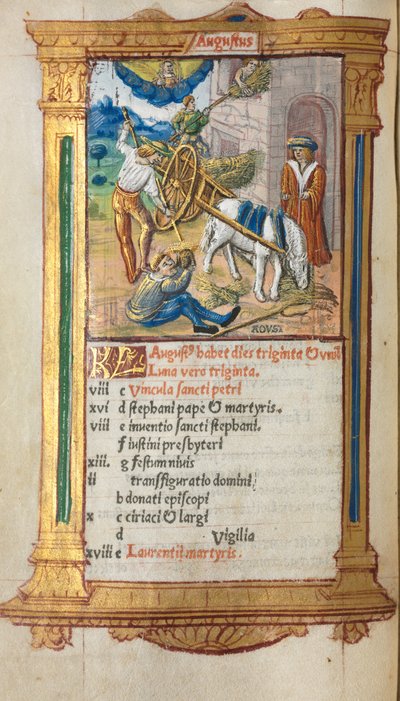 Augustus
AOUST
KL Augustꝰ habet dies triginta & unū
Luna vero triginta.
viii c Vincula sancti petri
xvi d stephani pape & martyris.
viii e inventio sancti stephani.
f iustini presbyteri
xiii. g festum nivis
ii transfiguratio domini
b donati episcopi
x c ciriaci & largi
d Vigilia
xviii e Laurentii martyris.